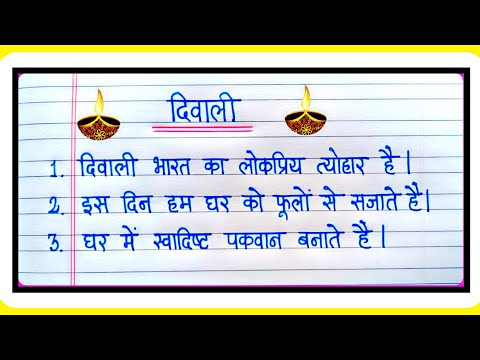 दिवाली
1. दिवाली भारत का लोकप्रिय त्योहार है।
2. इस दिन हम घर को फूलों से सजाते है।
3. घर में स्वादिष्ट पकवान बनाते है।